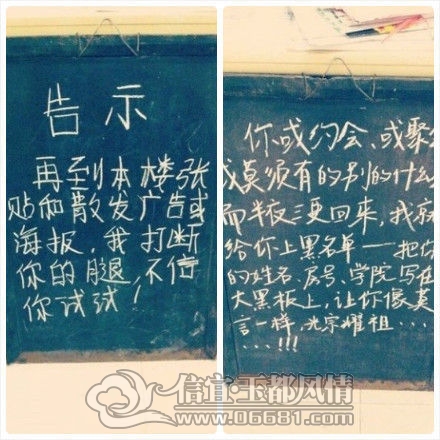 告示
再到本楼张
贴和散发广告或
海报，我打断
你的腿，不信
你试试！
你或约会、或聚
或莫须有的别的什么
而半夜三更回来，我就
给你上黑名单——把你
的姓名、房号、学院写在
大黑板上，让你像莫
言一样，光宗耀祖……
……!!!
信宜·玉都风情
www.06681.com